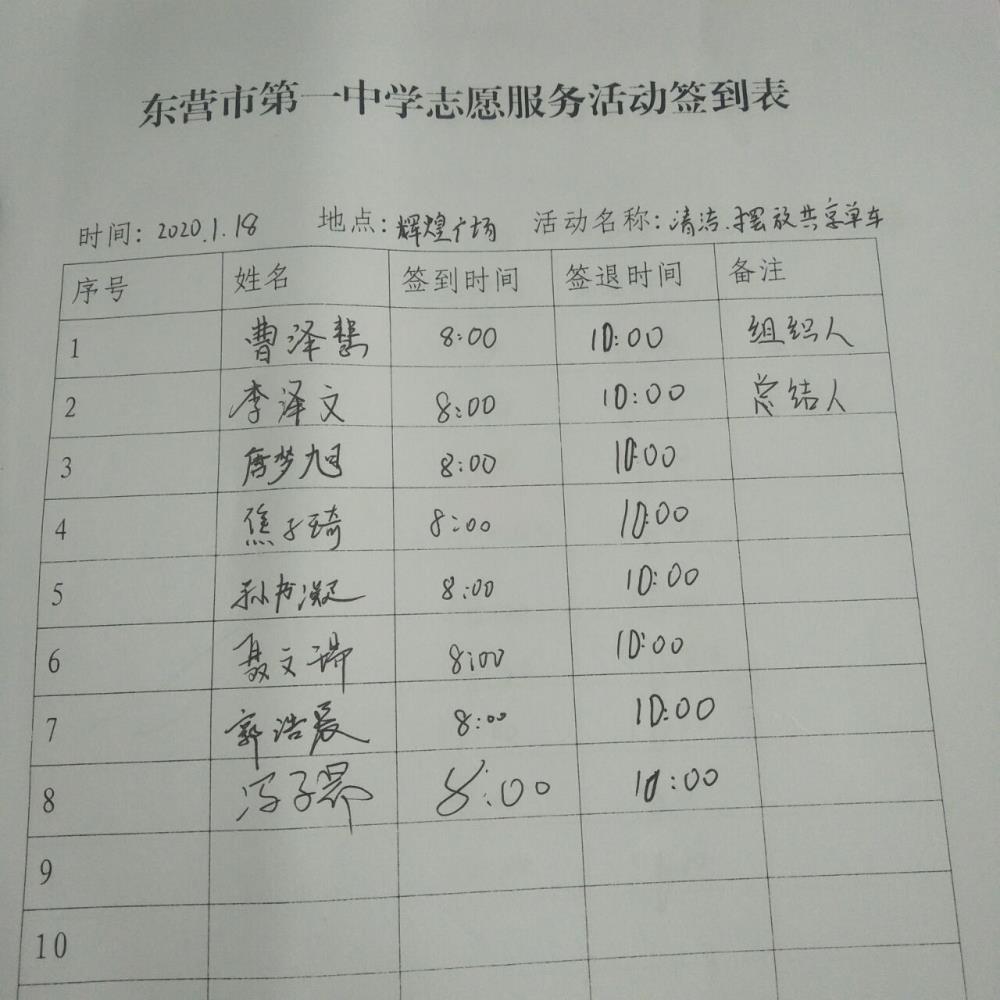 东营市第一中学志愿服务活动签到表
时间: 2020.1.18 地点: 辉煌广场 活动名称: 清洁.摆放共享单车
序号 姓名 签到时间 签退时间 备注
1 曹泽慧 8:00 10:00 组织人
2 李泽文 8:00 10:00 总结人
3 唐梦旭 8:00 10:00
4 焦子琦 8:00 10:00
5 孙书凝 8:00 10:00
6 聂文瑞 8:00 10:00
7 郭浩晨 8:00 10:00
8 冯子 8:00 10:00
9
10